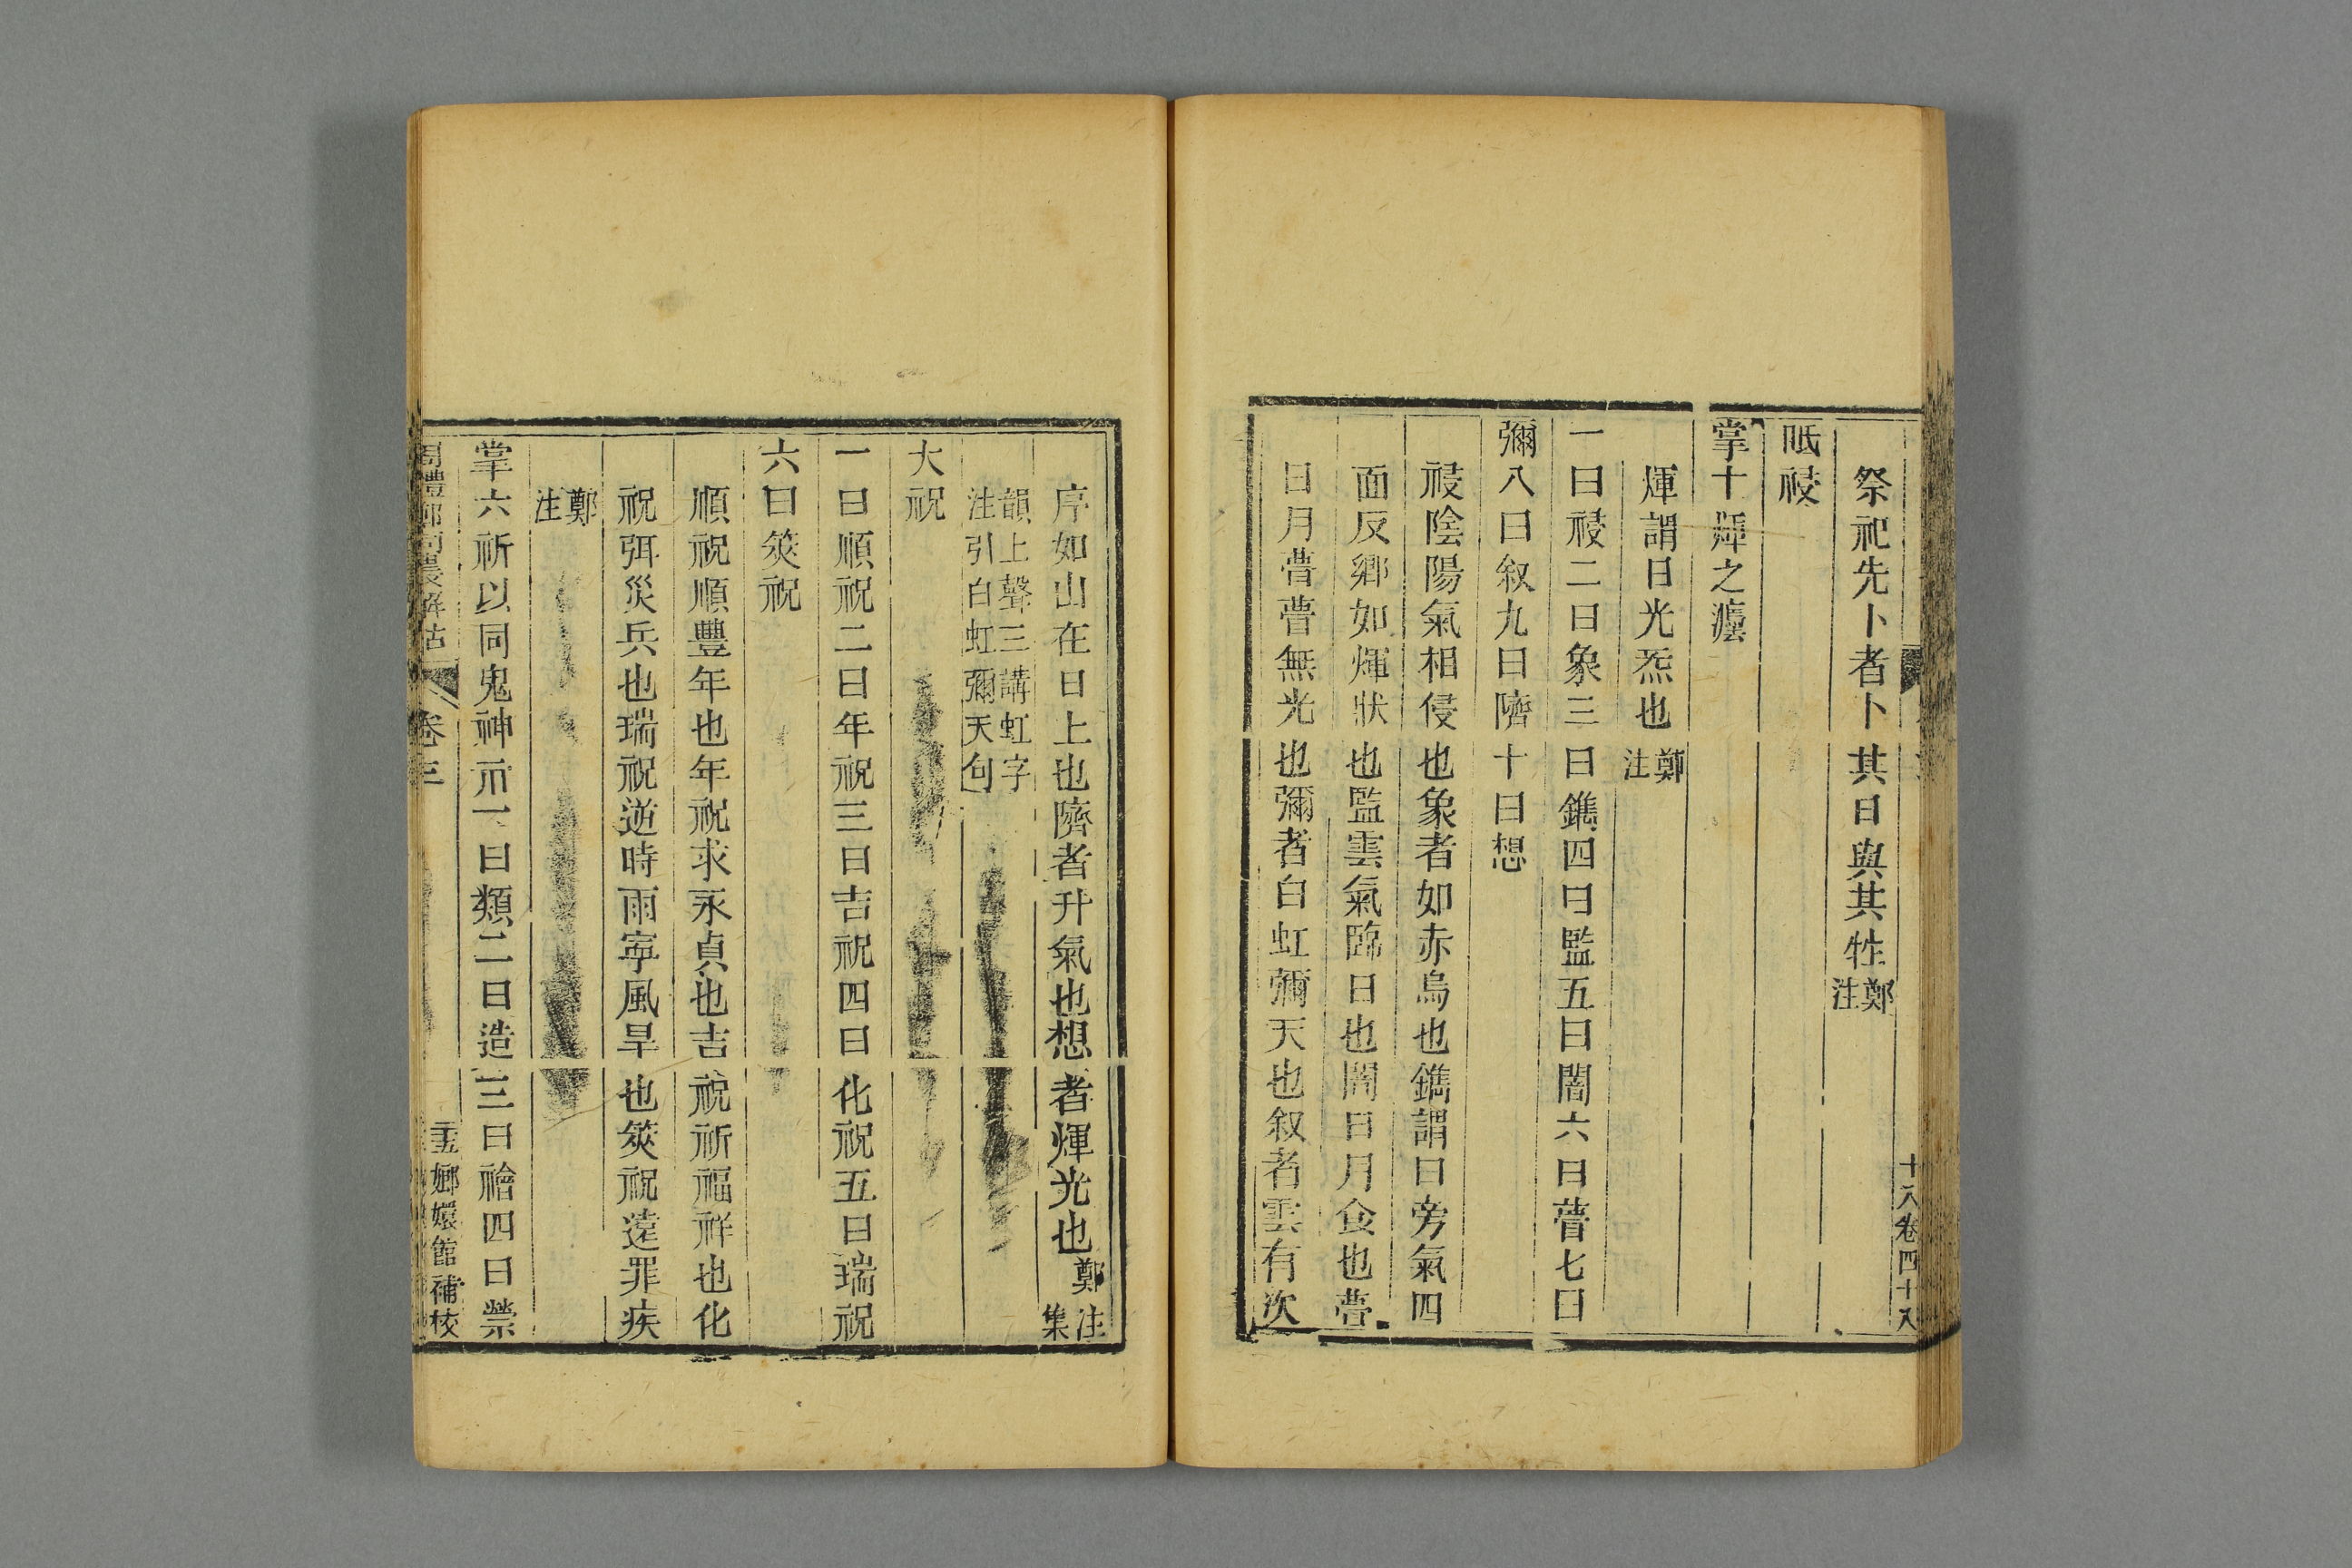 祭祀先卜者卜其日與其牲鄭注
眡祲
掌十煇之灋
煇謂日光炁也鄭注
一曰祲二曰象三曰鑴四曰監五曰闇六曰瞢七曰
彌八曰叙九曰隮十曰想
祲陰陽氣相侵也象者如赤烏也鑴謂日旁氣四
面反鄉如煇狀也監雲氣臨日也闇日月食也瞢
日月瞢瞢無光也彌者白虹彌天也叙者雲有次
十八卷四十八
序如山在日上也隮者升氣也想者煇光也鄭注集
韻上聲三講虹字
注引白虹彌天句
大祝
一曰順祝二曰年祝三曰吉祝四曰化祝五曰瑞祝
六曰筴祝
順祝順豐年也年祝求永貞也吉祝祈福祥也化
祝弭災兵也瑞祝逆時雨寧風旱也筴祝遠罪疾
鄭注
掌六祈以同鬼神示一曰類二曰造三曰禬四曰禜
周禮鄭司農解詁 卷三 嫏嬛館補校